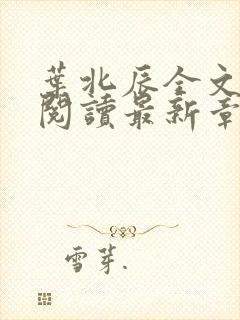 葉北辰全文
閱讀最新章
雪芽.